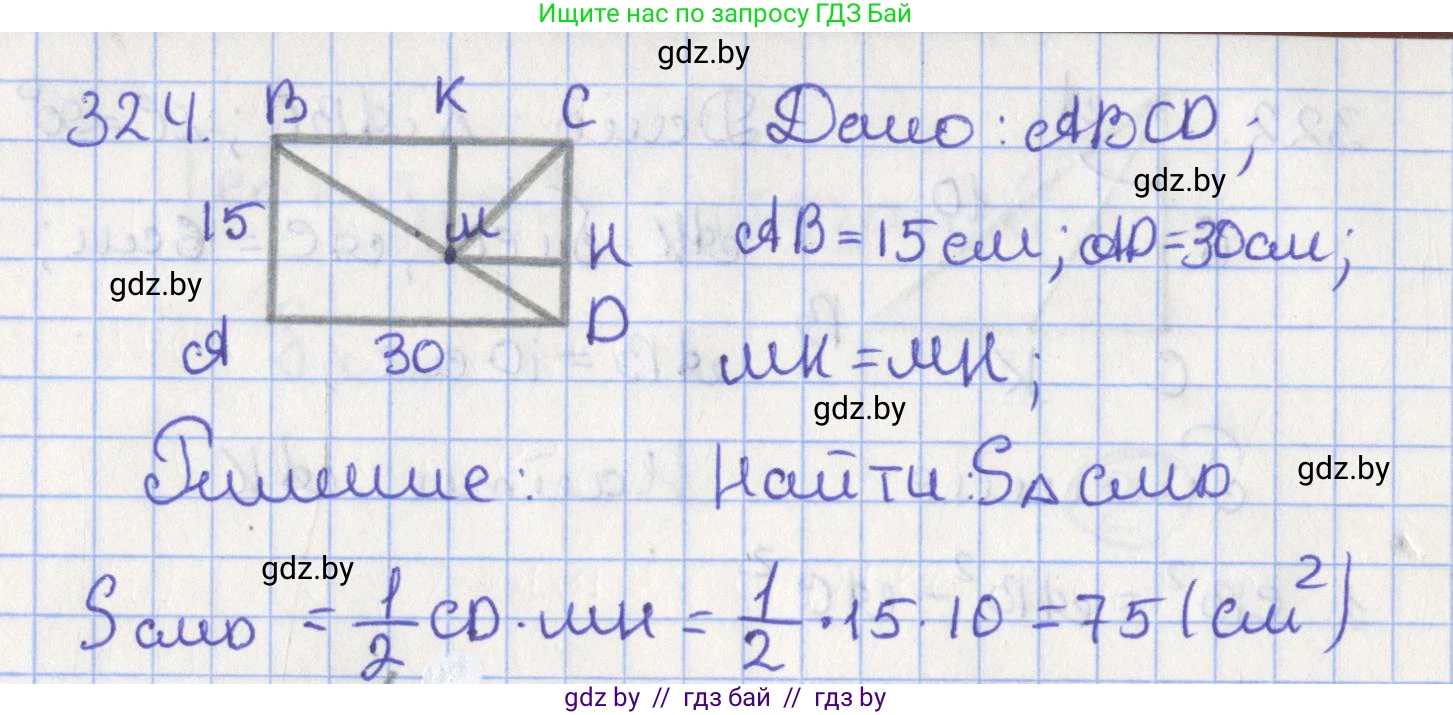 Ищите нас по запросу ГДЗ Бай
gdz.by
324. B K C Дано: ABCD;
gdz.by
15 M H AB = 15 см; AD = 30 см;
gdz.by
A 30 D MK = MH;
gdz.by
Решение: Найти: S△ CMD
gdz.by
gdz.by
S CMD = 1/2 CD · MH = 1/2 · 15 · 10 = 75 (см²)
gdz by // гдз бай // гдз by